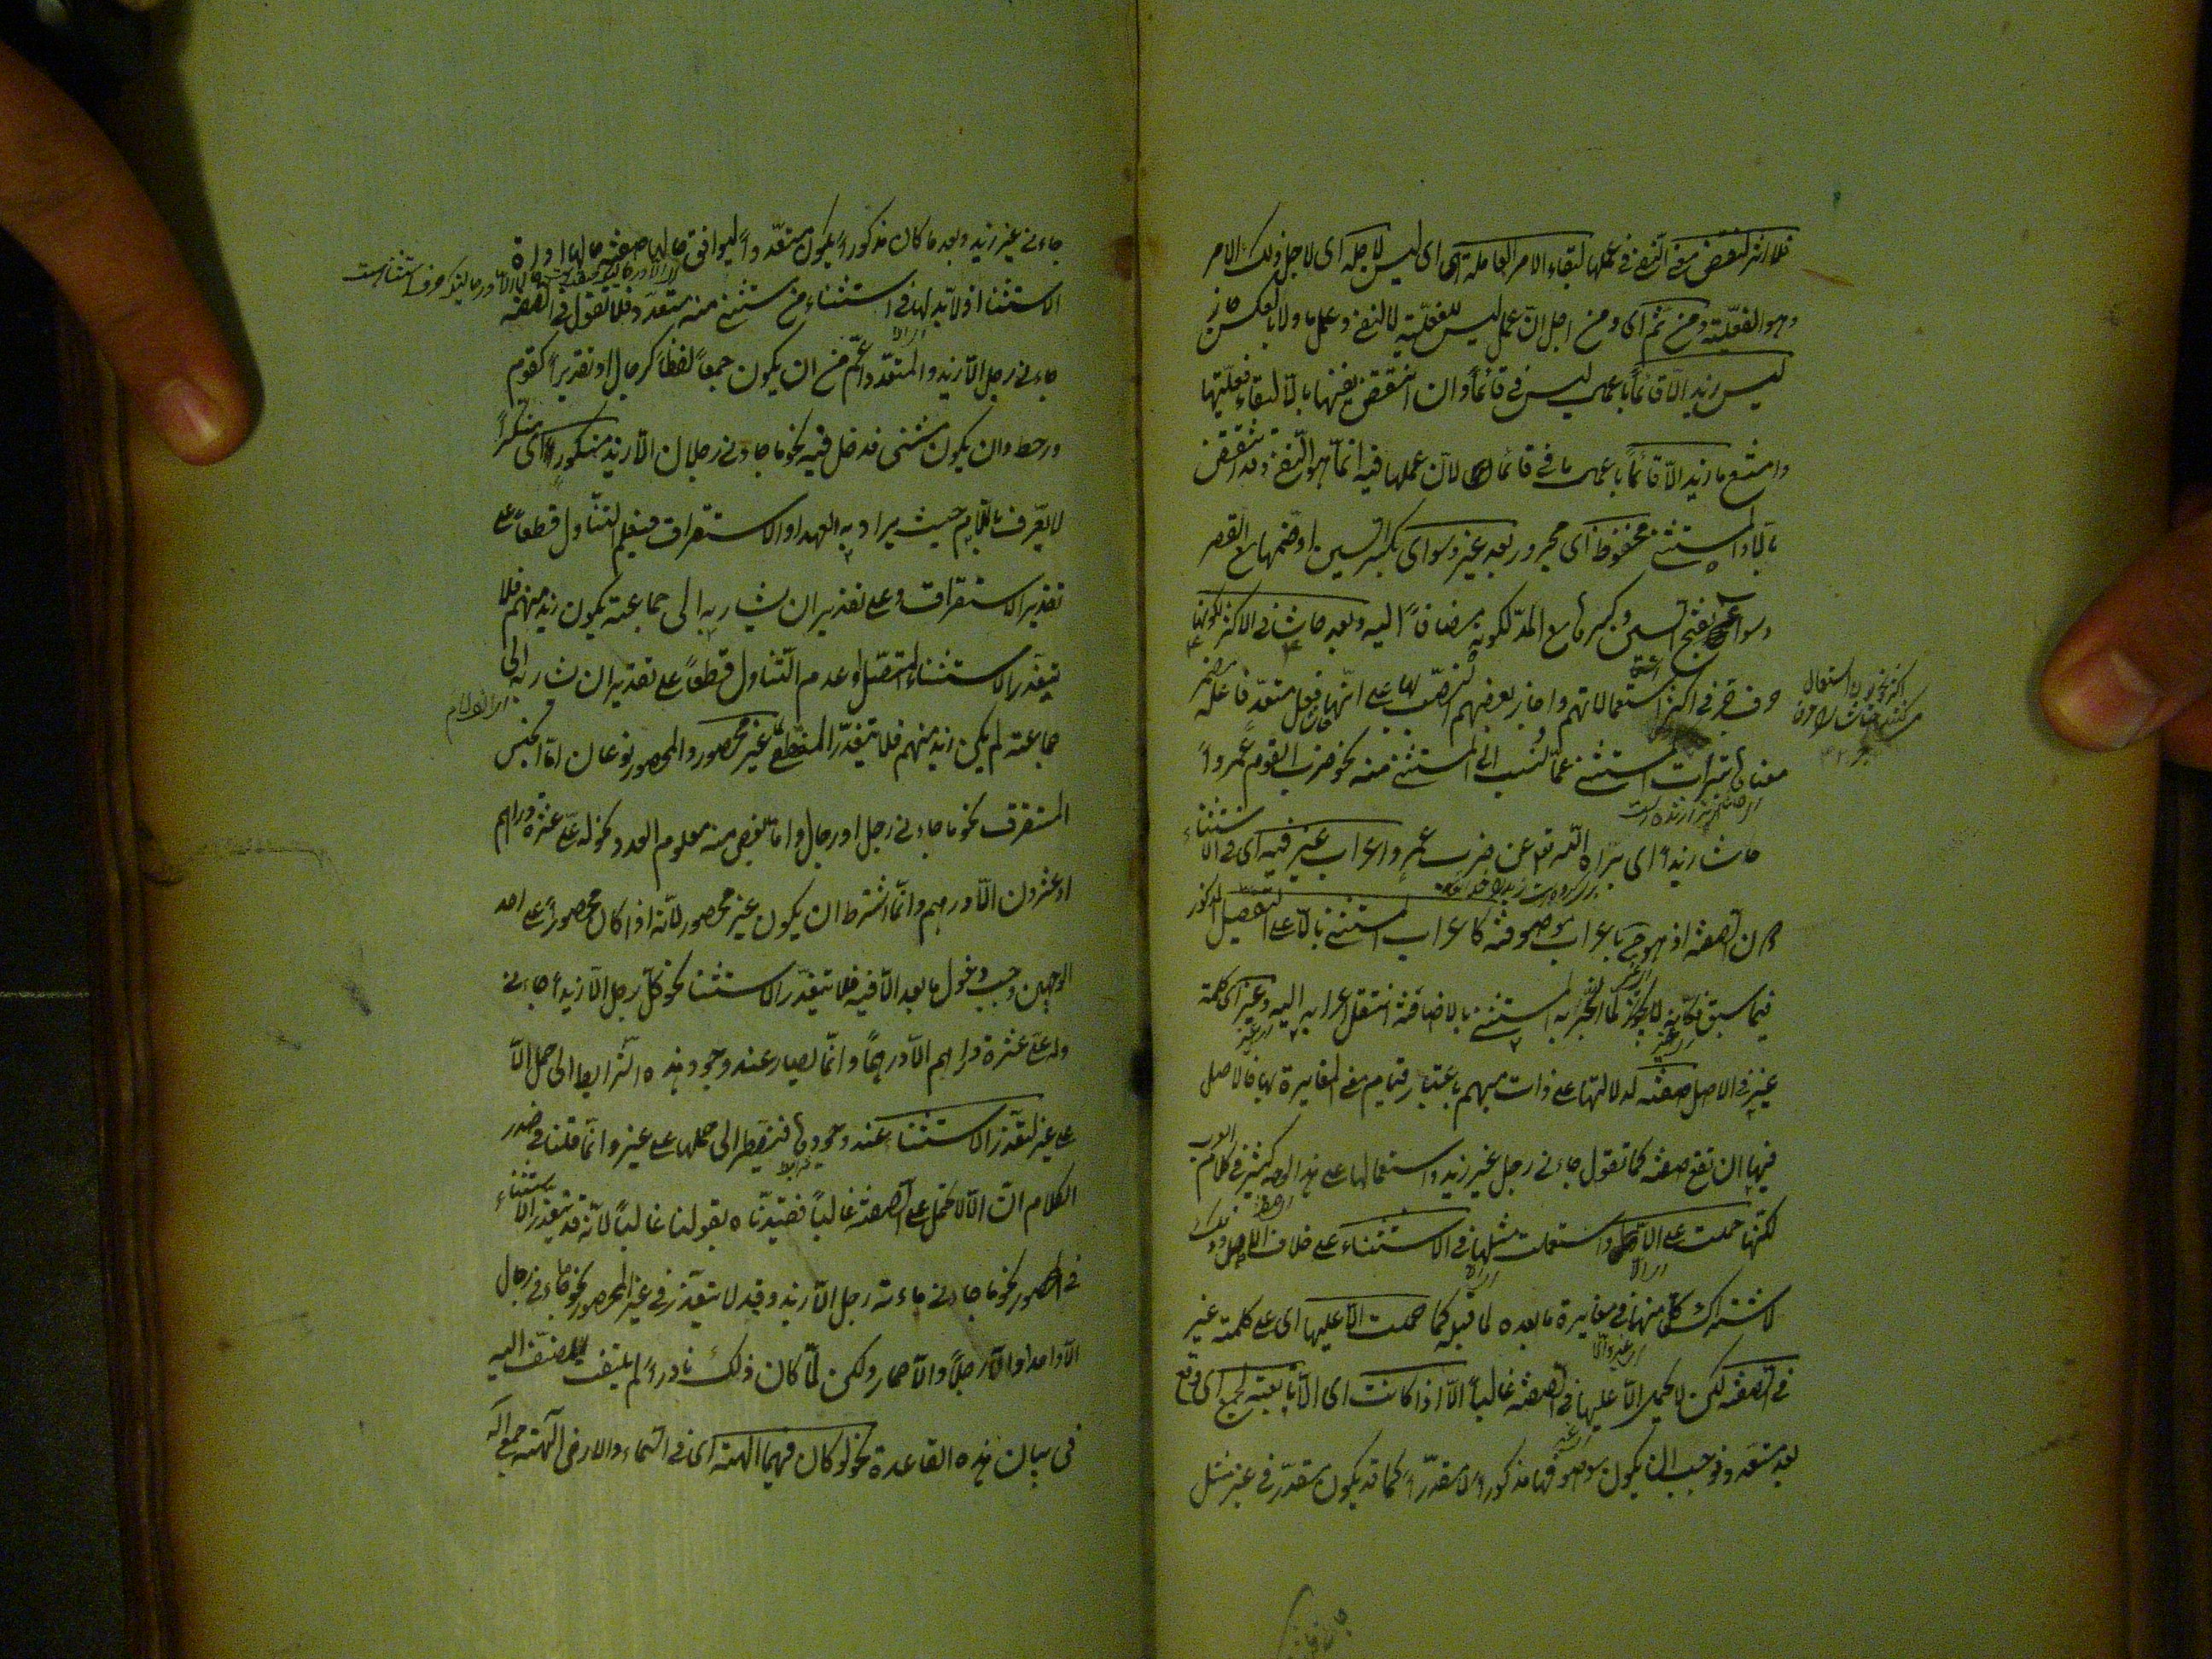 فلا اثر لنقض معنى النفى فى عملها لبقاء الامر العاملة هى اى ليس لاجله اى لاجل ذلك الامر
وهو الفعلية ومن ثم اى ومن اجل ان عمل ليس للفعلية لا للنفى وعمل ما ولا بالعكس جاز
ليس زيد الا قائماً باعمال ليس فى قائماً وان انتقض نفيها بالا لبقاء فعليتها
وامتنع ما زيد الا قائماً باعمال ما فى قائماً لان عملها فيه انما هو للنفى وقد انتقض
بالا والمستثنى مخفوض اى مجرور بعد غير وسوى بكسر السين او ضمها مع القصر
وسواء بفتح السين وكسرها مع المد لكونه مضافاً اليه وبعد حاشا فى الاكثر لكونها
حرف جر فى اكثر استعمالاتهم واجاز بعضهم النصب بها على انها فعل متعد فاعله مضمر
معناه تبرئة المستثنى عما نسب الى المستثنى منه نحو ضرب القوم عمرواً
حاشا زيداً اى برّاه الله تعالى عن ضرب عمرو واعراب غير فيه اى فى الاستثناء
دون الصفة اذ هو ح باعراب موصوفه كاعراب المستثنى بالا على التفصيل المذكور
فيما سبق فكانه لما انجر به المستثنى بالاضافة انتقل اعرابه اليه وغير اى كلمة
غير فى الاصل صفة لدلالتها على ذات مبهم باعتبار قيام معنى المغايرة بها فالاصل
فيها ان تقع صفة كما تقول جاءنى رجل غير زيد واستعمالها على هذا الوجه كثير فى كلام العرب
لكنها حملت على الا واستعملت مثلها فى الاستثناء على خلاف الاصل وذلك
لاشتراك كل منهما فى مغايرة ما بعده لما قبله كما حملت الا عليها اى على كلمة غير
فى الصفة لكن لا يحمل الا عليها فى الصفة غالباً الا اذا كانت اى الا تابعة لجمع اى وقع
بعد متعدد فوجب ان يكون موصوفها مذكوراً لا مقدراً كما قد يكون مقدر فى غير مثل
جاءنى غير زيد وبعد ما كان مذكوراً يكون متعدداً ليوافق حالها صفة حالها اداة
الاستثناء اذ لا بد لها فى الاستثناء من مستثنى منه متعدد فلا تقول فى الصفة
جاءنى رجل الا زيد والمتعدد اعم من ان يكون جمعاً لفظاً كرجال او تقديراً كقوم
ورهط وان يكون مثنى فدخل فيه نحو ما جاءنى رجلان الا زيد منكور اى منكراً
لا يعرف باللام حيث يراد به العهد او الاستغراق فيعلم التناول قطعاً على
تقدير الاستغراق وعلى تقدير ان يشار به الى جماعة يكون زيد منهم فلا
يتعذر الاستثناء المتصل او عدم التناول قطعاً على تقدير ان يشار به الى
جماعة لم يكن زيد منهم فلا يتعذر المنقطع غير محصور والمحصور نوعان اما الجنس
المستغرق نحو ما جاءنى رجل او رجال واما بعض منه معلوم العدد نحو له على عشرة دراهم
او عشرون الا درهم وانما اشترط ان يكون غير محصور لانه اذا كان محصوراً على احد
الوجهين وجب دخول ما بعد الا فيه فلا يتعذر الاستثناء نحو كل رجل الا زيداً جاءنى
وله على عشرة دراهم الا درهماً وانما يصار عند وجود هذه الشرايط الى حمل الا
على غير لتعذر الاستثناء عند وجودها فيضطر الى حملها على غير وانما قلنا فى صدر
الكلام ان الا لا تحمل على الصفة غالباً فقيدناه بقولنا غالباً لانه قد يتعذر الاستثناء
فى المحصور نحو ما جاءنى ماءة رجل الا زيد وقد لا يتعذر فى غير المحصور نحو جاءنى رجال
الا واحداً والا رجلاً والا حمار ولكن لما كان ذلك نادراً لم يلتفت المصنف اليه
فى بيان هذه القاعدة نحو لو كان فيهما الهة اى فى السماء والارض الهة جمع اله